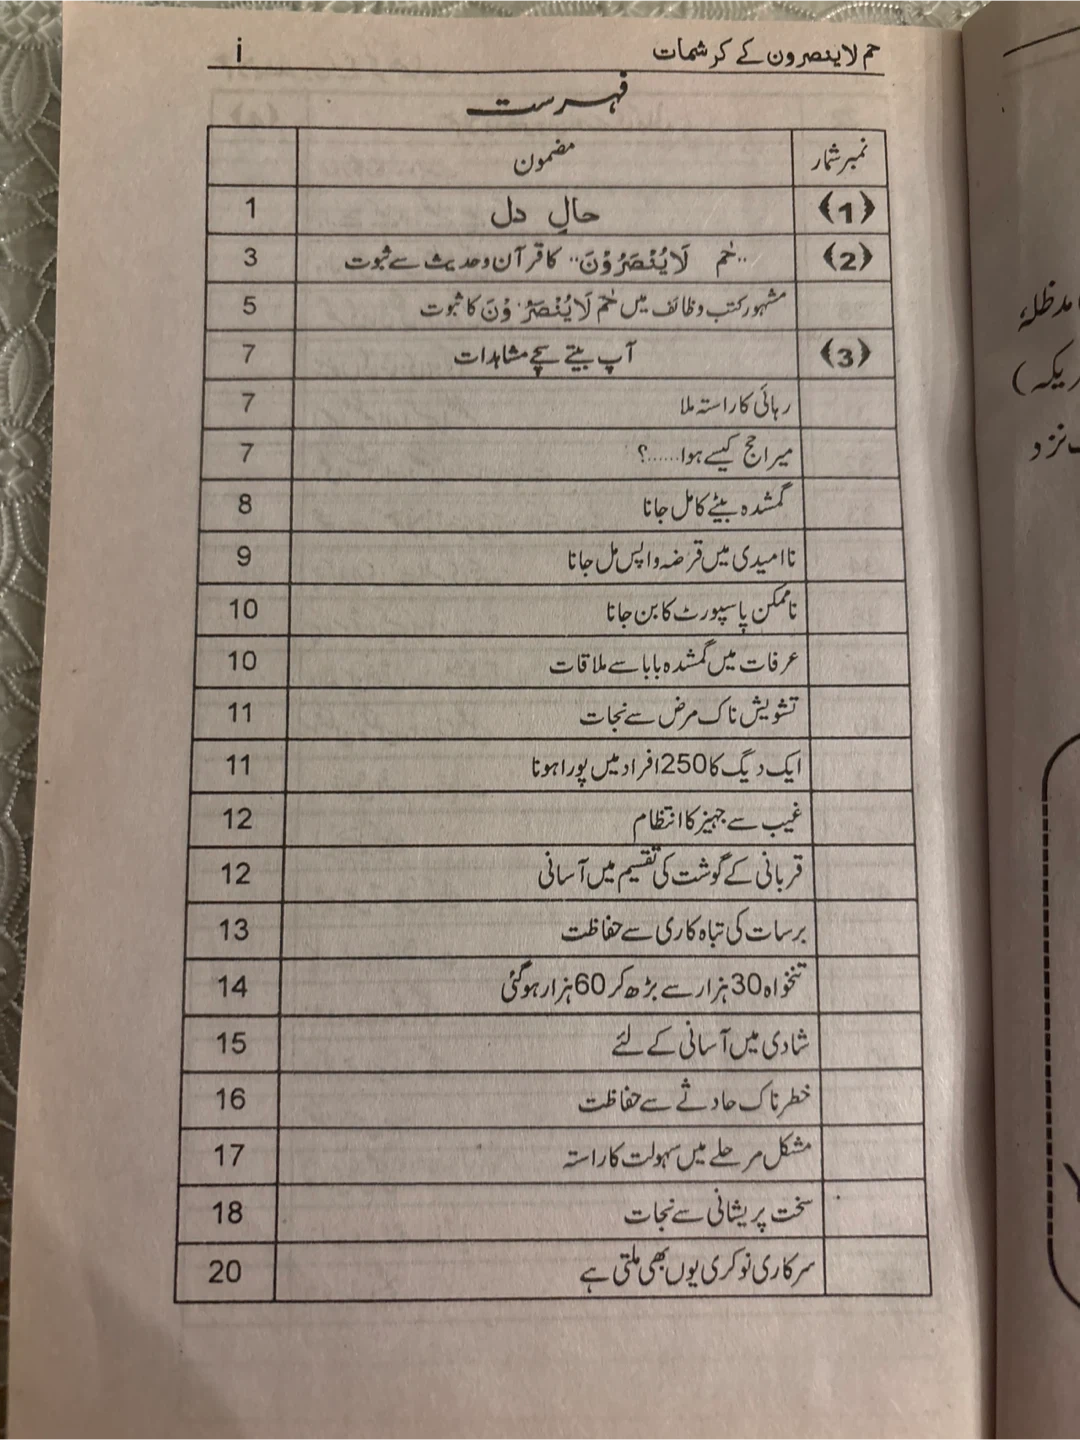 حم لاینصرون کے کرشمات i
فہرست
نمبر شمار مضمون
﴿1﴾ حالِ دل 1
﴿2﴾ ”حٰم لَا یُنْصَرُوْنَ“ کا قرآن و حدیث سے ثبوت 3
مشہور کتب وظائف میں حٰم لَا یُنْصَرُوْنَ کا ثبوت 5
﴿3﴾ آپ بیتے سچے مشاہدات 7
رہائی کا راستہ ملا 7
میرا حج کیسے ہوا......؟ 7
گمشدہ بیٹے کا مل جانا 8
ناامیدی میں قرضہ واپس مل جانا 9
ناممکن پاسپورٹ کا بن جانا 10
عرفات میں گمشدہ بابا سے ملاقات 10
تشویش ناک مرض سے نجات 11
ایک دیگ کا 250 افراد میں پورا ہونا 11
غیب سے جہیز کا انتظام 12
قربانی کے گوشت کی تقسیم میں آسانی 12
برسات کی تباہ کاری سے حفاظت 13
تنخواہ 30 ہزار سے بڑھ کر 60 ہزار ہوگئی 14
شادی میں آسانی کے لئے 15
خطرناک حادثے سے حفاظت 16
مشکل مرحلے میں سہولت کا راستہ 17
سخت پریشانی سے نجات 18
سرکاری نوکری یوں بھی ملتی ہے 20
مدظلہٗ
ریکہ)
نزد